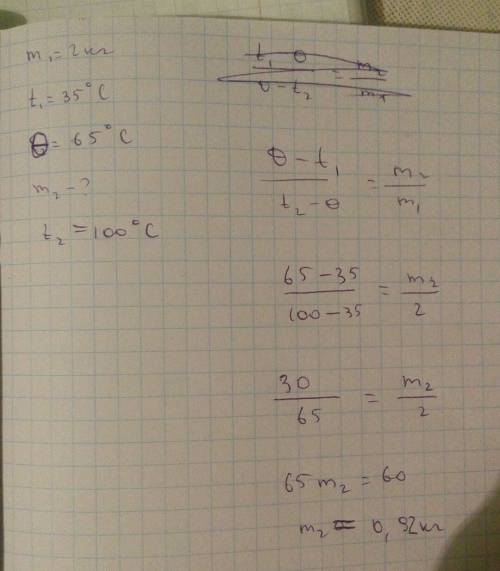 m₁ = 2кг
t₁ = 35°C
θ = 65°C
m₂ - ?
t₂ = 100°C
(θ - t₁)/(t₂ - θ) = m₂/m₁
(65 - 35)/(100 - 35) = m₂/2
30/65 = m₂/2
65 m₂ = 60
m₂ = 0,92кг